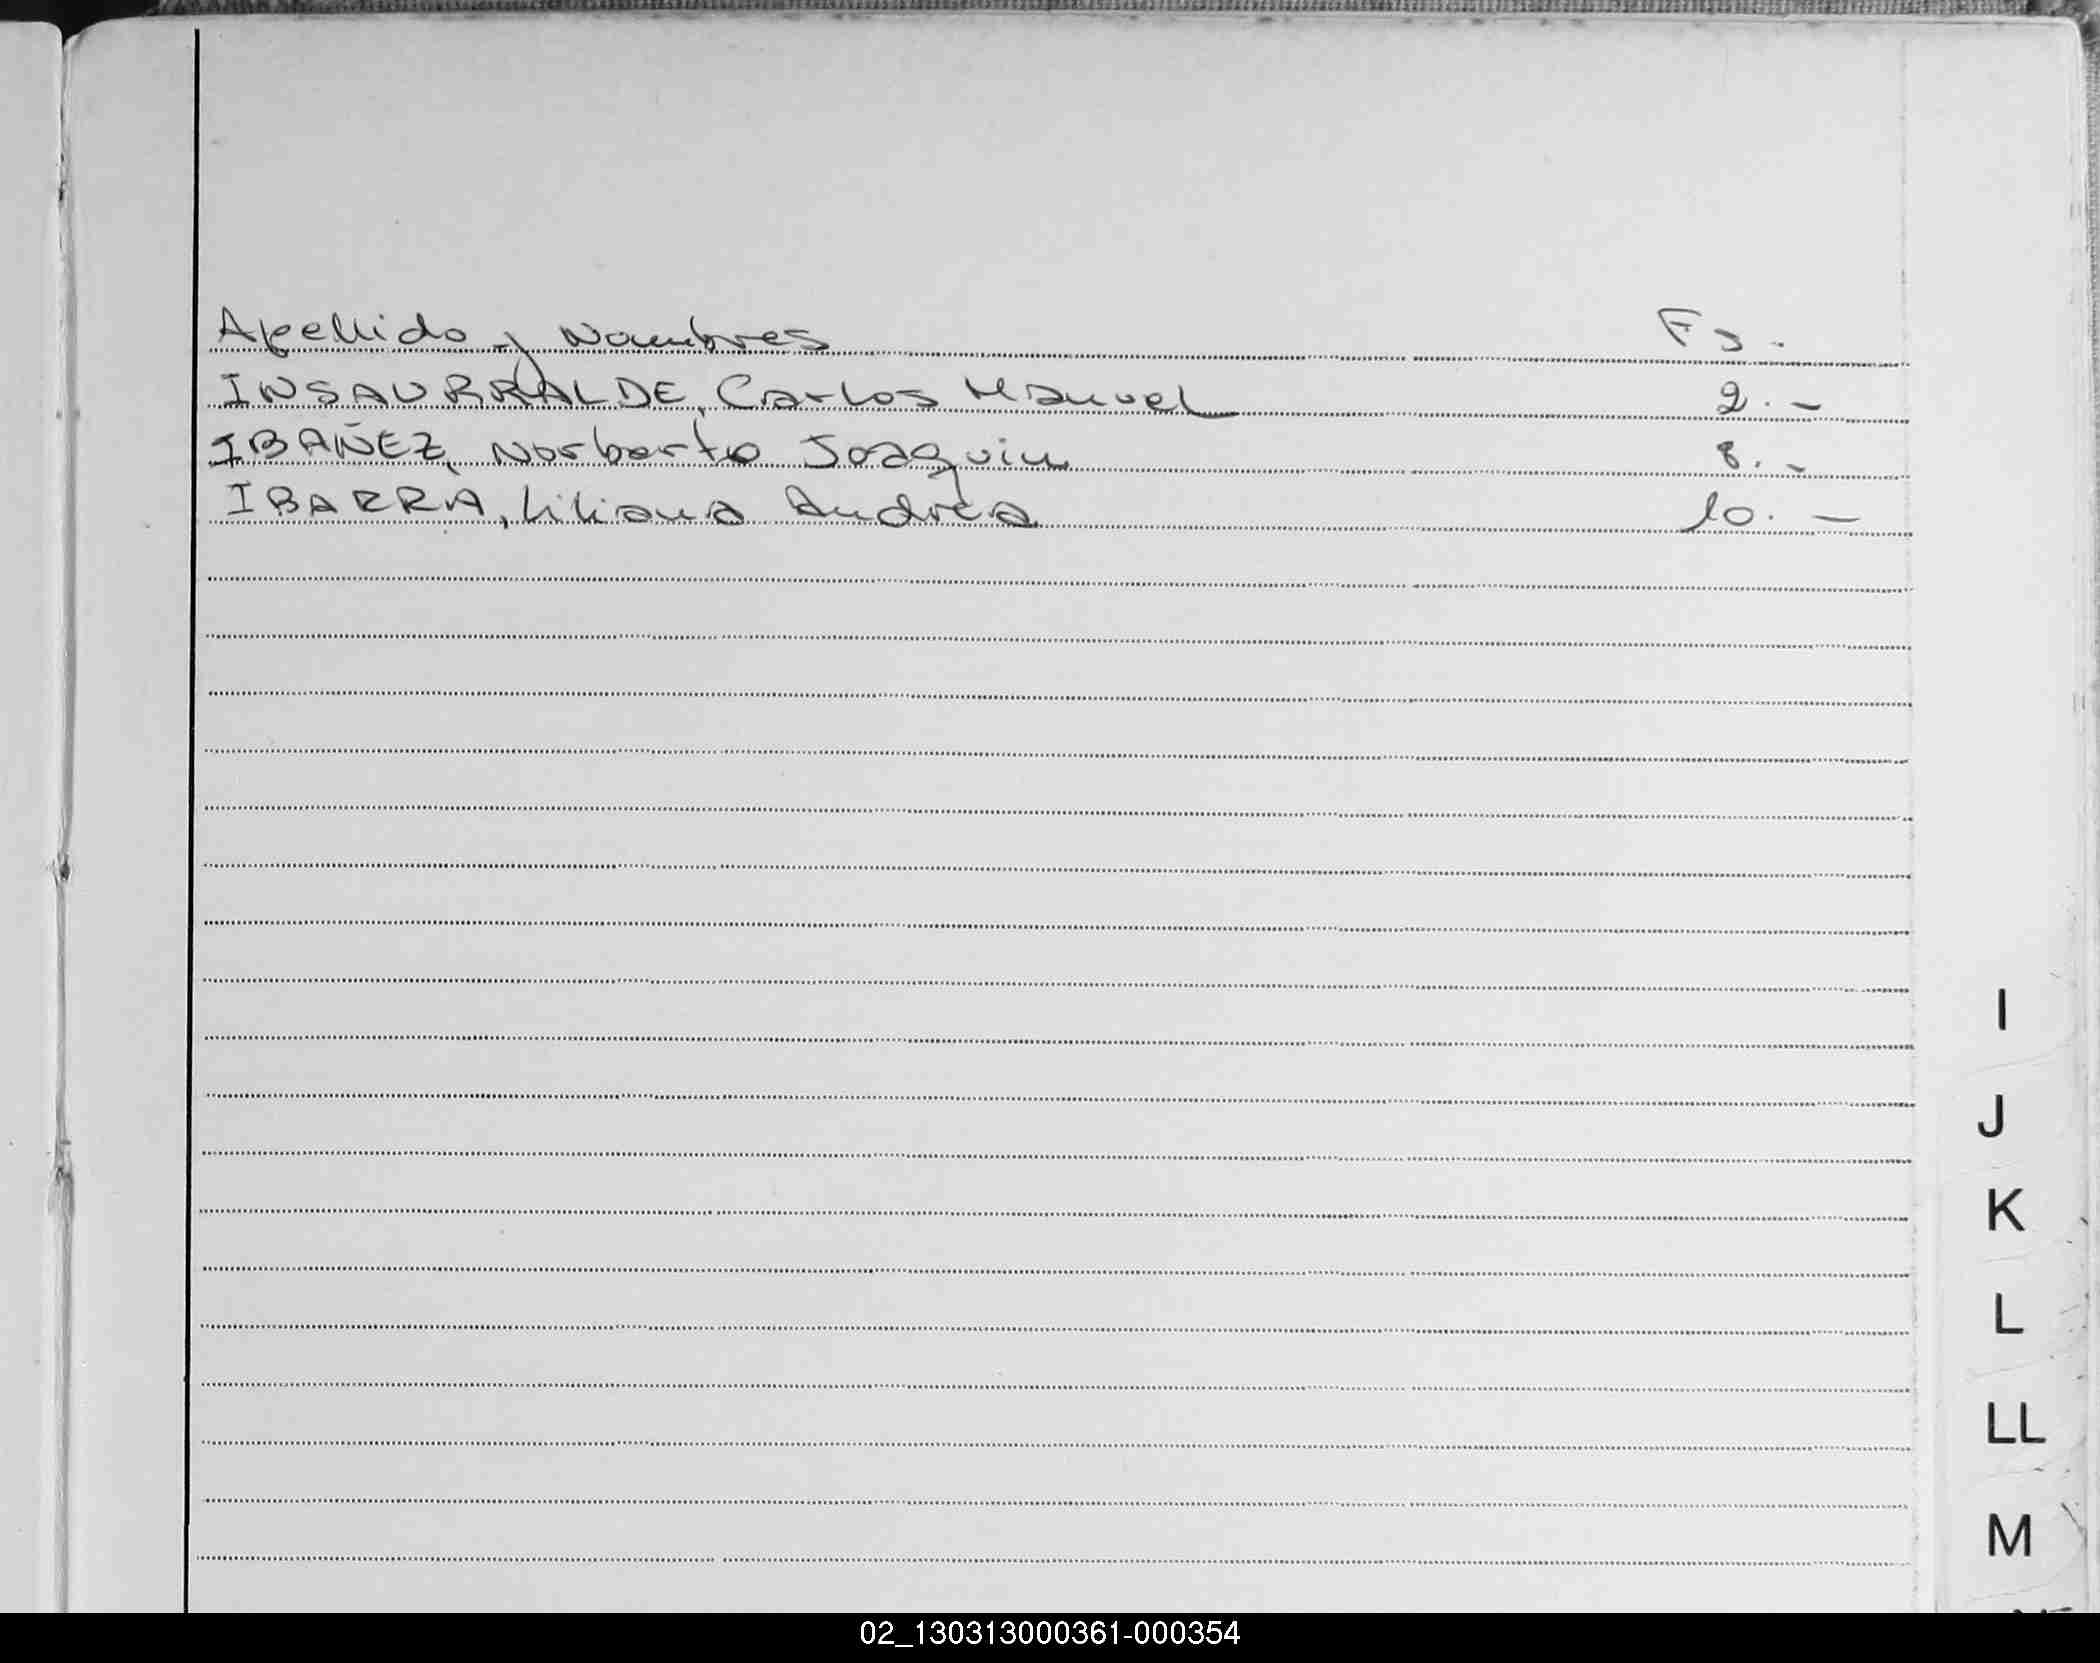 Apellido y Nombres Fs.
INSAURRALDE, Carlos Manuel 2. -
IBAÑEZ, Norberto Joaquin 8. -
IBARRA, Liliana Andrea 10. -
I
J
K
L
LL
M
02_130313000361-000354